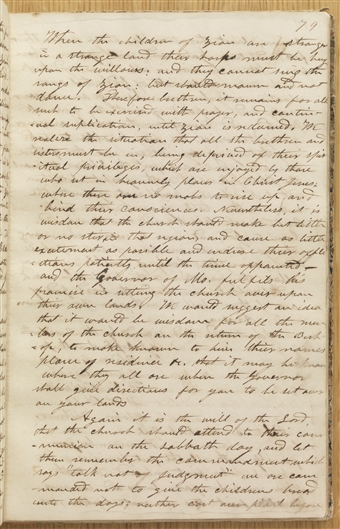 79
When the children of Zion are stranger
in a strange land their harps must be hung
upon the willows: and they cannot sing the
songs of Zion: but should mourn and not
dance. Therefore brethren, it remains for all
such to be exercised with prayer, and contin-
ual suplication, until Zion is redeemed. We
realize the situation that all the brethren and
sisters must be in, being deprived of their spir
itual privileges, which are enjoyed by those
who sit in heavenly places in Christ Jesus;
where there are no mobs to rise up and
bind their consciences. Nevertheless, it is
wisdom that the church should make but little
or no stir in that region, and cause as little
excitement as possible and endure their afflic
tions patiently until the time appointed—
and the Governor of Mo. fulfils his
promise in setting the church over upon
their own lands. We would suggest an idea
that it would be wisdom for all the mem
bers of the church on the return of the Bish
op, to make known to him their names
place of residence &c. that it may be known
where they all are when the Governor
shall give directions for you to be set over
on your lands
Again it is the will of the Lord,
that the church should attend to their com
munion on the sabbath day, and let
them remember the commandment which
says "talk not judgment" we are com
manded not to give the childrens bread
unto the dogs; neither cast our pearls before